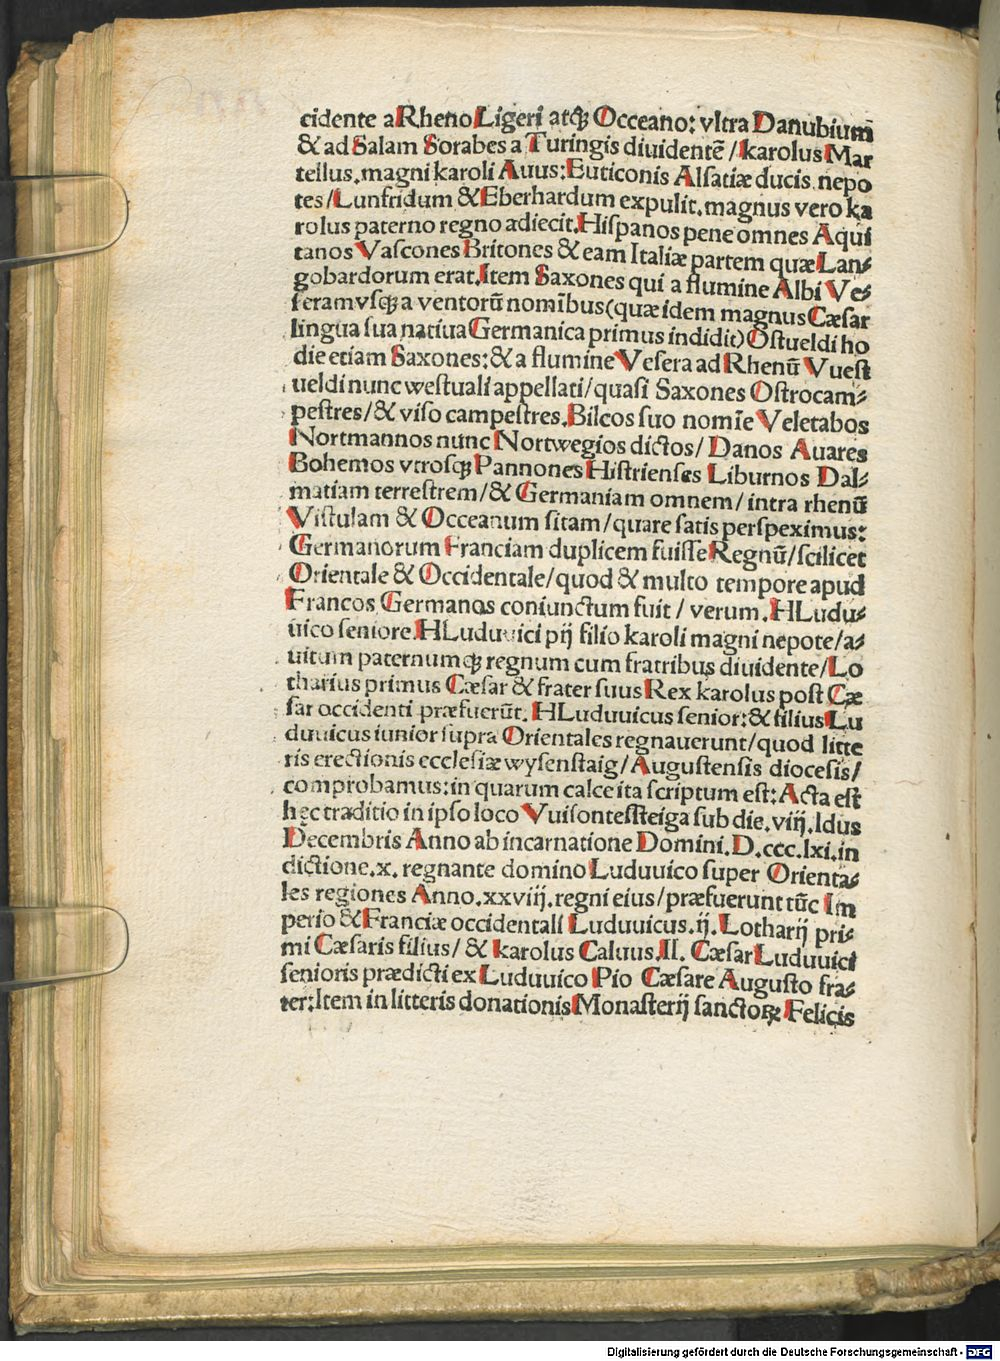 cidente a Rheno Ligeri atqꝫ Occeano: vltra Danubium
& ad Salam Sorabes a Turingis diuidentē / karolus Mar
tellus. magni karoli Auus: Euticonis Alsatiæ ducis. nepo
tes / Lunfridum & Eberhardum expulit. magnus vero ka
rolus paterno regno adiecit. Hispanos pene omnes Aqui
tanos Vascones Britones & eam Italiæ partem quæ Lan⸗
gobardorum erat. Item Saxones qui a flumine Albi Ve⸗
seram vsqꝫ a ventorū nomībus (quæ idem magnus Cæsar
lingua sua natiua Germanica primus indidit) Ostueldi ho
die etiam Saxones: & a flumine Vesera ad Rhenū Vuest
ueldi nunc westuali appellati / quasi Saxones Ostrocam⸗
pestres / & viso campestres. Bilcos suo nomīe Veletabos
Nortmannos nunc Nortwegios dictos / Danos Auares
Bohemos vtrosqꝫ Pannones Histrienses Liburnos Dal⸗
matiam terrestrem / & Germaniam omnem / intra rhenū
Vistulam & Occeanum sitam / quare satis perspeximus:
Germanorum Franciam duplicem fuisse Regnū / scilicet
Orientale & Occidentale / quod & multo tempore apud
Francos Germanos coniunctum fuit / verum. HLudu⸗
uico seniore. HLuduuici pij filio karoli magni nepote / a⸗
uitum paternumqꝫ regnum cum fratribus diuidente / Lo
tharius primus Cæsar & frater suus Rex karolus post Cæ
sar occidenti præfuerūt. HLuduuicus senior: & filius Lu
duuicus iunior supra Orientales regnauerunt / quod litte
ris erectionis ecclesiæ wysenstaig / Augustensis diocesis /
comprobamus: in quarum calce ita scriptum est: Acta est
hęc traditio in ipso loco Vuisontessteiga sub die. viij. Idus
Decembris Anno ab incarnatione Domini. D. ccc. lxi. in
dictione. x. regnante domino Luduuico super Orienta⸗
les regiones Anno. xxviij. regni eius / præfuerunt tūc Im
perio & Franciæ occidentali Luduuicus. ij. Lotharij pri⸗
mi Cæsaris filius / & karolus Caluus. II. Cæsar Luduuici
senioris prædicti ex Luduuico Pio Cæsare Augusto fra⸗
ter: Item in litteris donationis Monasterij sanctoꝝ Felicis
Digitalisierung gefördert durch die Deutsche Forschungsgemeinschaft - DFG